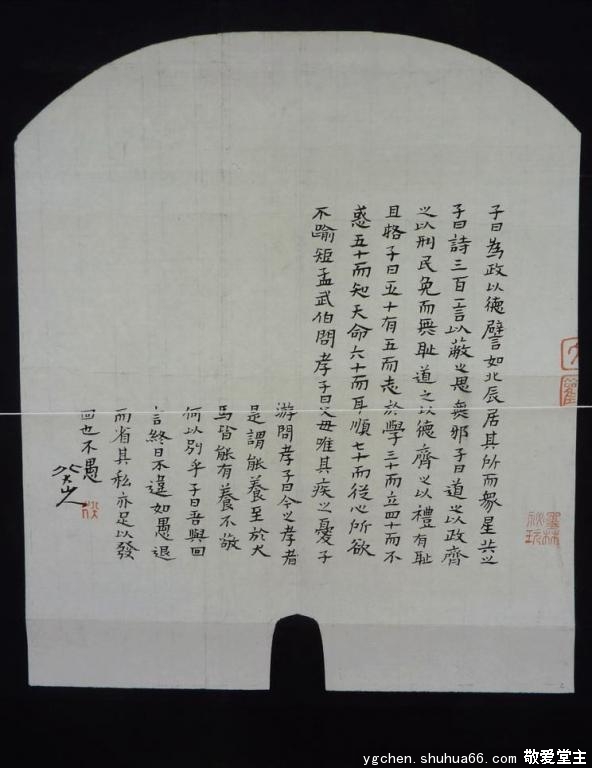 子曰為政以德譬如北辰居其所而眾星共之
子曰詩三百一言以蔽之思無邪子曰道之以政齊
之以刑民免而無恥道之以德齊之以禮有恥
且格子曰五十有五而志於學三十而立四十而不
惑五十而知天命六十而耳順七十而從心所欲
不踰短孟武伯問孝子曰父母唯其疾之憂子
游問孝子曰今之孝者
是謂能養至於犬
馬皆能有養不敬
何以別乎子曰吾與回
言終日不違如愚退
而省其私亦足以發
回也不愚
八大山人
墨林秘玩
ygchen.shuhua66.com 敬爱堂主